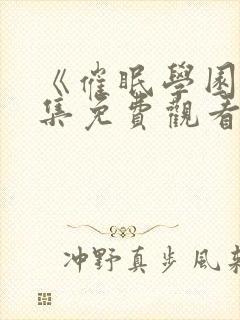 《催眠學園
集免費觀看
冲野真步風架